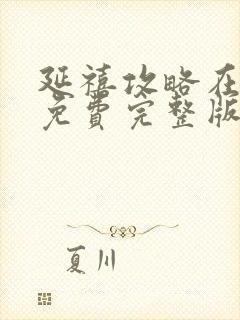 延禧攻略在
免费完整版
夏川